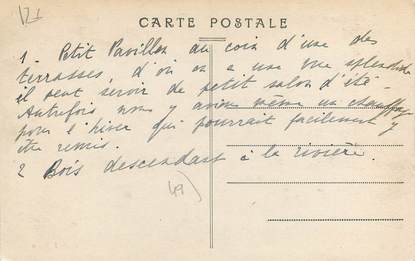 121
CARTE POSTALE
1 Petit Pavillon au coin d'une des
terrasses, d'où on a une vue splendide
il peut servir de petit salon d'été -
Autrefois nous y avions même un chauffage
pour l'hiver qui pourrait facilement y
être remis.
2 Bois descendant à la rivière.
49)